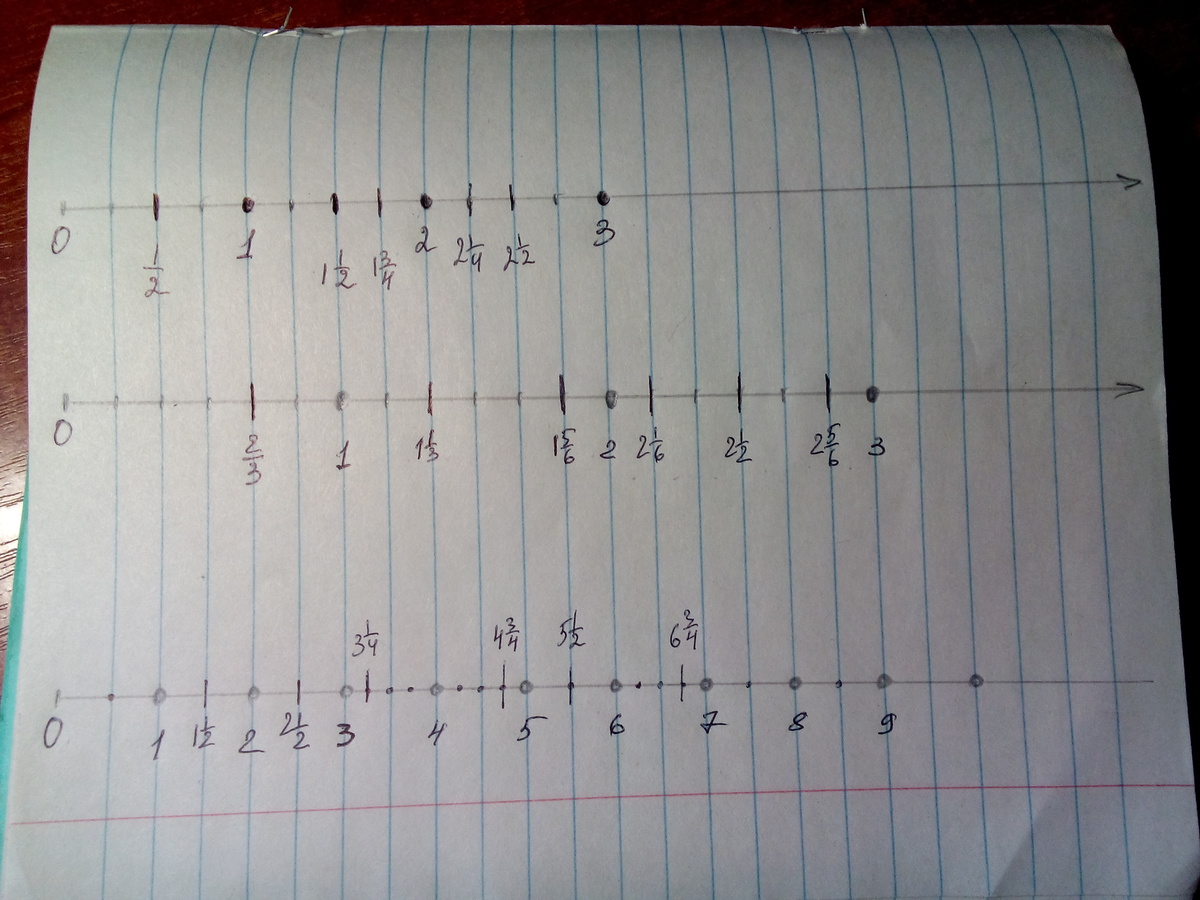 0 1/2 1 1 1/2 1 3/4 2 2 1/4 2 1/2 3
0 2/3 1 1 1/3 1 5/6 2 2 1/6 2 1/2 2 5/6 3
3 1/4 4 3/4 5 1/2 6 3/4
0 1 1 1/2 2 2 1/2 3 4 5 6 7 8 9